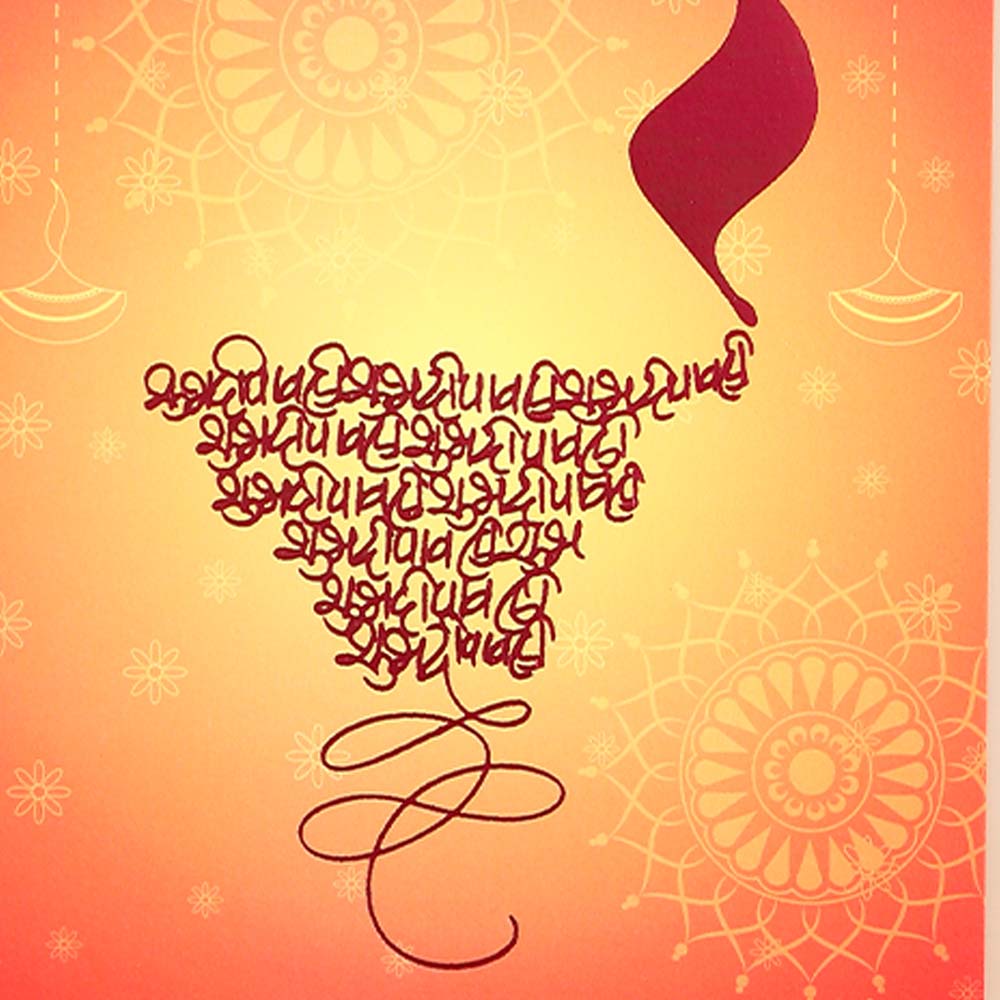 शुभ दीपावली शुभ दीपावली शुभ दीपावली
शुभ दीपावली शुभ दीपावली
शुभ दीपावली शुभ दीपावली
शुभ दीपावली शुभ
शुभ दीपावली
शुभ दीपावली